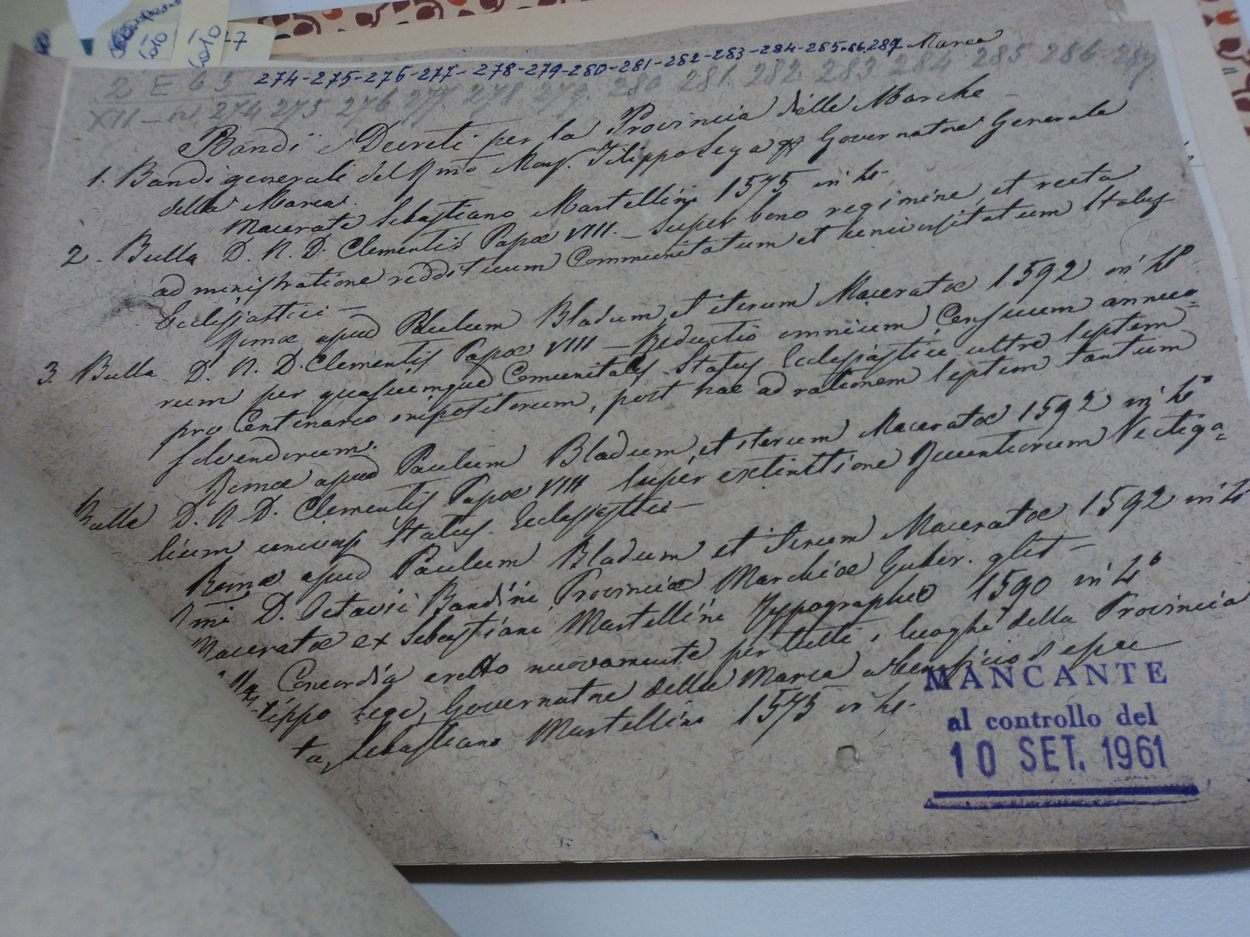 274-275-276-277-278-279-280-281-282-283-284-285-86.287 Marca
2 E 65
XII - n. 274 275 276 277 278 279. 280 281. 282 283 284 285 286. 287.
Bandi e Decreti per la Provincia delle Marche
1. Bandi generali del Rmo Mons. Filippo Sega Governatore Generale
della Marca.
Macerata Sebastiano Martellini 1575 in 4º
2. Bulla D. N. D. Clementis Papæ VIII. – super bono regimine, et recta
administratione reddituum Communitatum et universitatum Status
Ecclesiastici –
Romæ apud Paulum Bladum et iterum Maceratæ 1592 in 4º
3. Bulla D. N. D. Clementis Papæ VIII – Reductio omnium Censuum annuo=
rum per quascumque Comunitates Status Ecclesiastici ultra septem
pro Centinario impositorum, post hac ad rationem septem tantum
solvendorum.
Romæ apud Paulum Bladum, et iterum Maceratæ 1592 in 4º
Bulla D. N. D. Clementis Papæ VIII super extinctione Vectiga=
lium univers. Status Ecclesiastici –
Romæ apud Paulum Bladum et iterum Maceratæ 1592 in 4º
D. Octavii Bandini Provinciæ Marchiæ Guber. glis –
Maceratæ ex Sebastiani Martellini Typographo 1590 in 4º
Concordia eretto nuovamente per tutti i luoghi della Provincia
Sega, Governatore della Marca a beneficio
Sebastiano Martellini 1575 in 4º
MANCANTE
al controllo del
10 SET. 1961